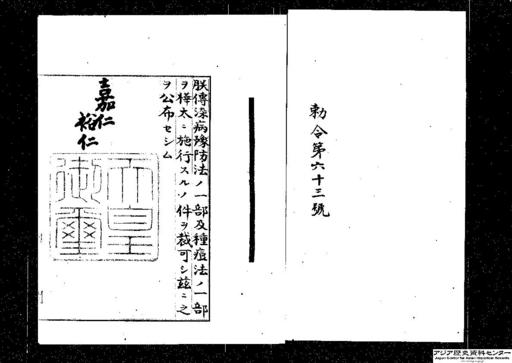 勅令第六十三號
朕傳染病豫防法ノ一部及種痘法ノ一部
ヲ樺太ニ施行スルノ件ヲ裁可シ茲ニ之
ヲ公布セシム
嘉仁
裕仁
天皇御璽
アジア歴史資料センター
Japan Center for Asian Historical Records